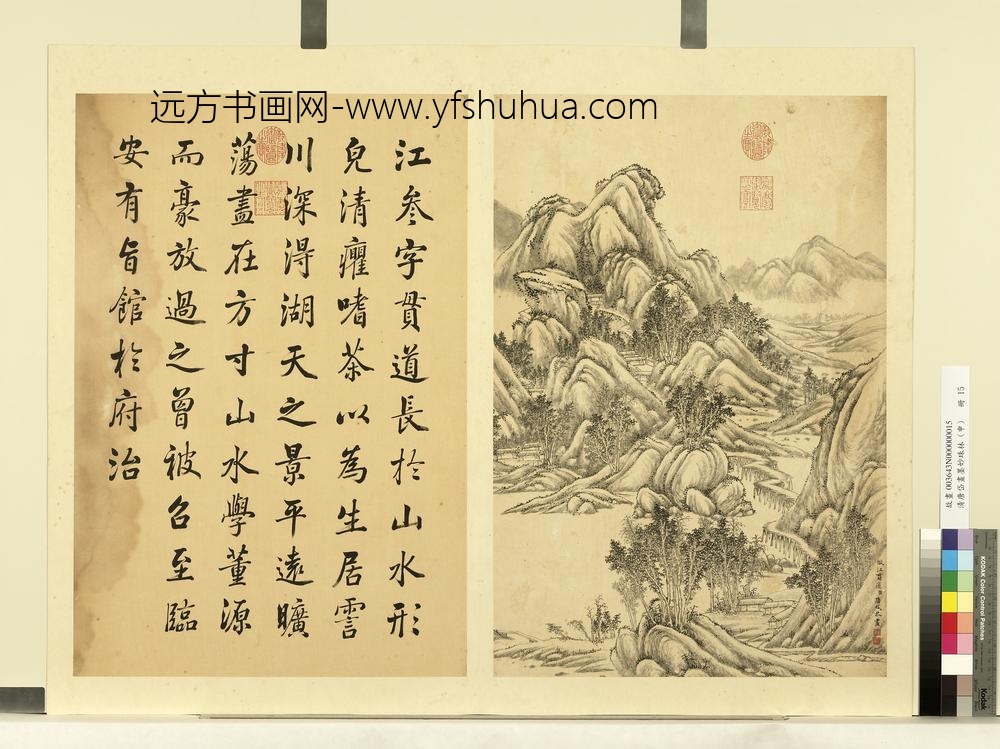 远方书画网-www.yfshuhua.com
江叅字貫道長扵山水形
皃清癯嗜茶以為生居霅
川深淂湖天之景平遠曠
蕩盡在方寸山水學董源
而豪放過之曾被召至臨
安有旨館扵府治
故畫 003643N000000015
清唐岱畫墨妙珠林（申） 冊 15
KODAK Color Control Patches
Kodak